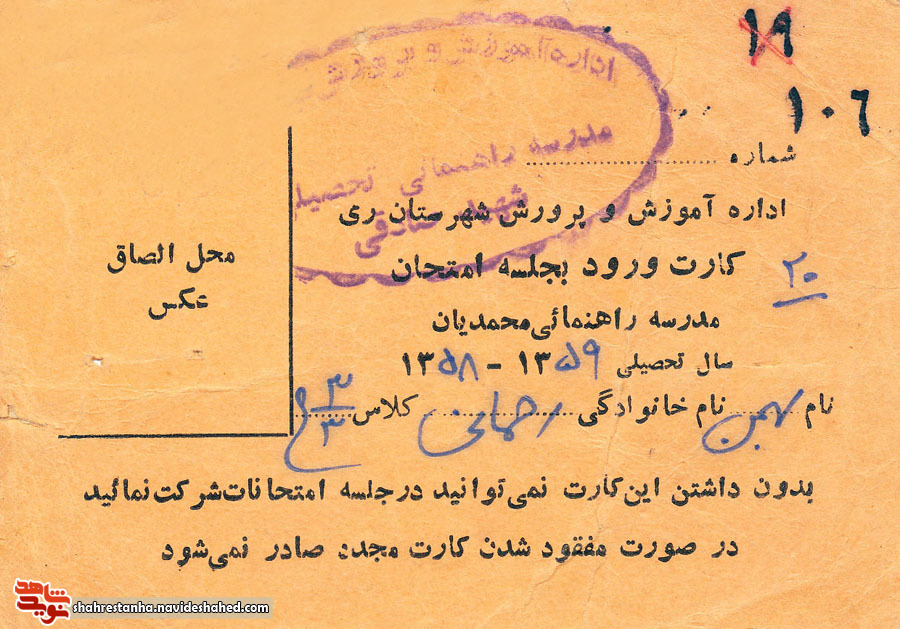 ۱۹
۱۰۶
اداره آموزش و پرورش
مدرسه راهنمائی تحصیلی
شهید صادقی
شماره
اداره آموزش و پرورش شهرستان ری
کارت ورود بجلسه امتحان
۲۰
مدرسه راهنمائی محمدیان
سال تحصیلی ۱۳۵۹ - ۱۳۵۸
نام بهمن نام خانوادگی رحمانی کلاس ۳/۳
محل الصاق
عکس
بدون داشتن این کارت نمی توانید در جلسه امتحانات شرکت نمائید
در صورت مفقود شدن کارت مجدد صادر نمی شود
نوید شاهد
shahrestanha.navideshahed.com